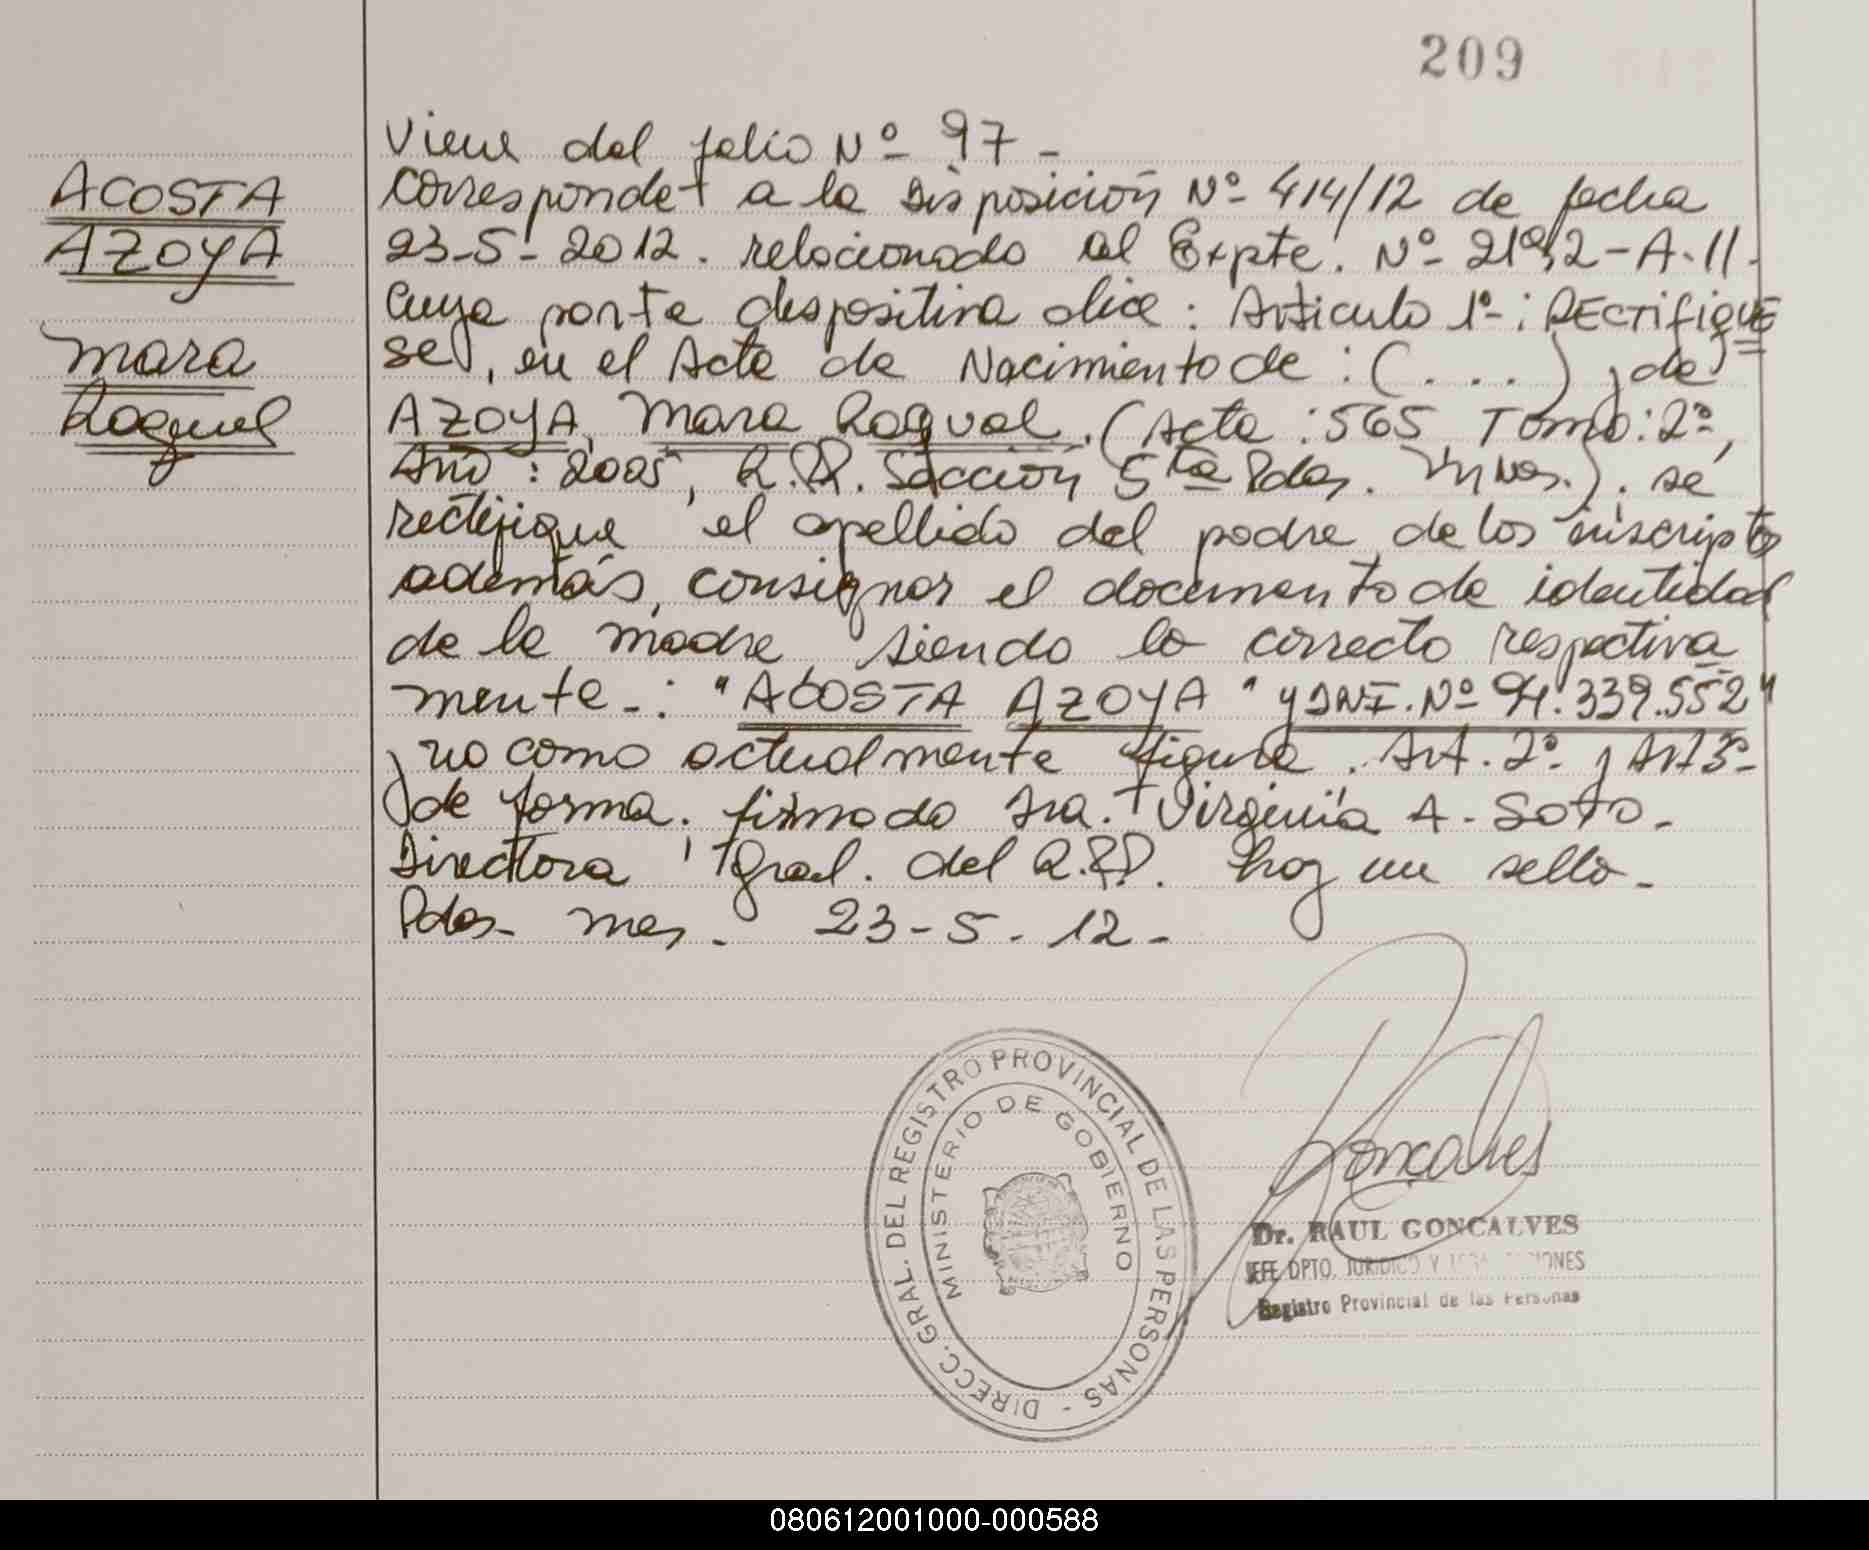 209
ACOSTA
AZOYA
Mara
Raquel
Viene del folio Nº 97 -
Corresponde a la Disposición Nº 414/12 de fecha
23-5-2012. relacionado al Expte. Nº 2192-A-11.
Cuya parte dispositiva dice: Artículo 1º: RECTIFIQUE
SE, en el Acta de Nacimiento de: (. . . .) y de
AZOYA, Mara Raquel. (Acta: 565, Tomo: 2º,
Año: 2005, R.P.P. Sección 5ta Pdas. Mnes.). se
rectifique el apellido del padre de los inscriptos
además, consignar el documento de identidad
de la madre, siendo lo correcto respectiva
mente -: "ACOSTA AZOYA" y DNI. Nº 94.339.552"
y no como actualmente figura. Art. 2º y Art 3º-
de forma. firmado Dra. Virginia A. Soto -
Directora Gral. del R.P.P. hay un sello -
Pdas- Mnes. 23-5-12-
DIRECC. GRAL. DEL REGISTRO PROVINCIAL DE LAS PERSONAS -
MINISTERIO DE GOBIERNO
Goncalves
Dr. RAUL GONCALVES
JEFE DPTO. JURIDICO Y
Registro Provincial de las Personas
080612001000-000588